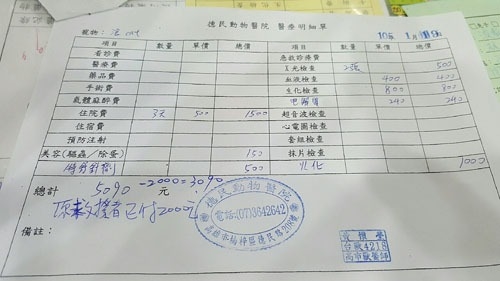 德民動物醫院 醫療明細單
寵物: cat 105年1月
項目 數量 單價 總價 項目 數量 單價 總價
看診費 急救診療費
醫療費 X光檢查 2張 500
藥品費 血液檢查 400 400
手術費 生化檢查 800 800
氣體麻醉費 240 240
住院費 3天 500 1500 超音波檢查
住宿費 心電圖檢查
預防注射 套組檢查
美容(驅蟲/除蚤) 150 抹片檢查
500 火化 1000
總計 5090 -2000=3090 元
原救援者已付2000元
備註:
德民動物醫院
電話:(07)3642642
高雄市楠梓區德民路208號
台獸4218
高市獸醫師